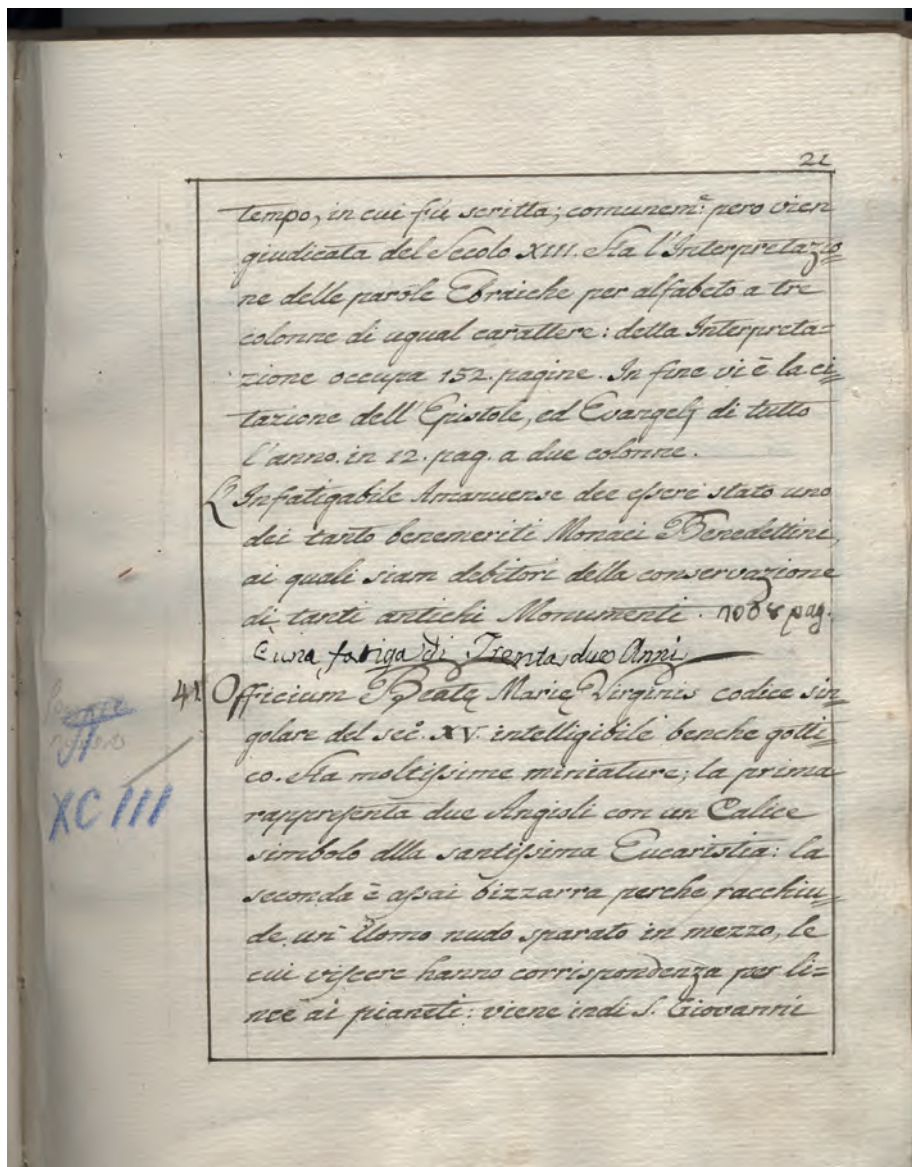 21
tempo, in cui fù scritta; comunem.e pero vien
giudicata del Secolo XIII. Ha l'Interpretazio=
ne delle parole Ebraiche per alfabeto a tre
colonne di ugual carattere: detta Interpreta=
zione occupa 152. pagine. In fine vi è la ci=
tazione dell'Epistole, ed Evangelj di tutto
l'anno in 12. pag. a due colonne.
L'Infatigabile Amanuense dee esseri stato uno
dei tanto benemeriti Monaci Benedettini,
ai quali siam debitori della conservazione
di tanti antichi Monumenti. 1008 pag.
È una fatiga di Trenta due Anni
41. Officium Beatę Marię Virginis codice sin
golare del sec.o XV. intelligibile benche gotti=
co. Ha moltissime miniature; la prima
rappresenta due Angioli con un Calice
simbolo dlla santissima Eucaristia: la
seconda è assai bizzarra perche racchiu=
de un Uomo nudo sparato in mezzo, le
cui viscere hanno corrispondenza per li=
nee ai pianeti: viene indi S. Giovanni
XCIII